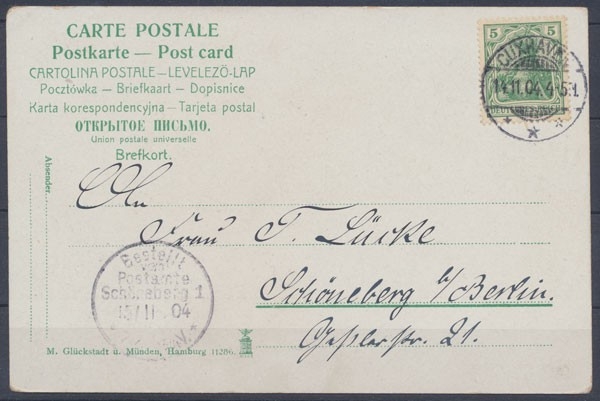 CARTE POSTALE
Postkarte — Post card
CARTOLINA POSTALE — LEVELEZÖ-LAP
Pocztówka — Briefkaart — Dopisnice
Karta korespondencyjna — Tarjeta postal
ОТКРЫТОЕ ПИСЬМО.
Union postale universelle
Brefkort.
5 5
CUXHAVEN
14.11.04. 4-5N.
Absender.
An
Frau T. Lücke
Schöneberg b/Berlin.
Geßlerstr. 21.
Bestellt
vom
Postamte
Schöneberg 1
15/11 04
M. Glückstadt u. Münden, Hamburg 11286.